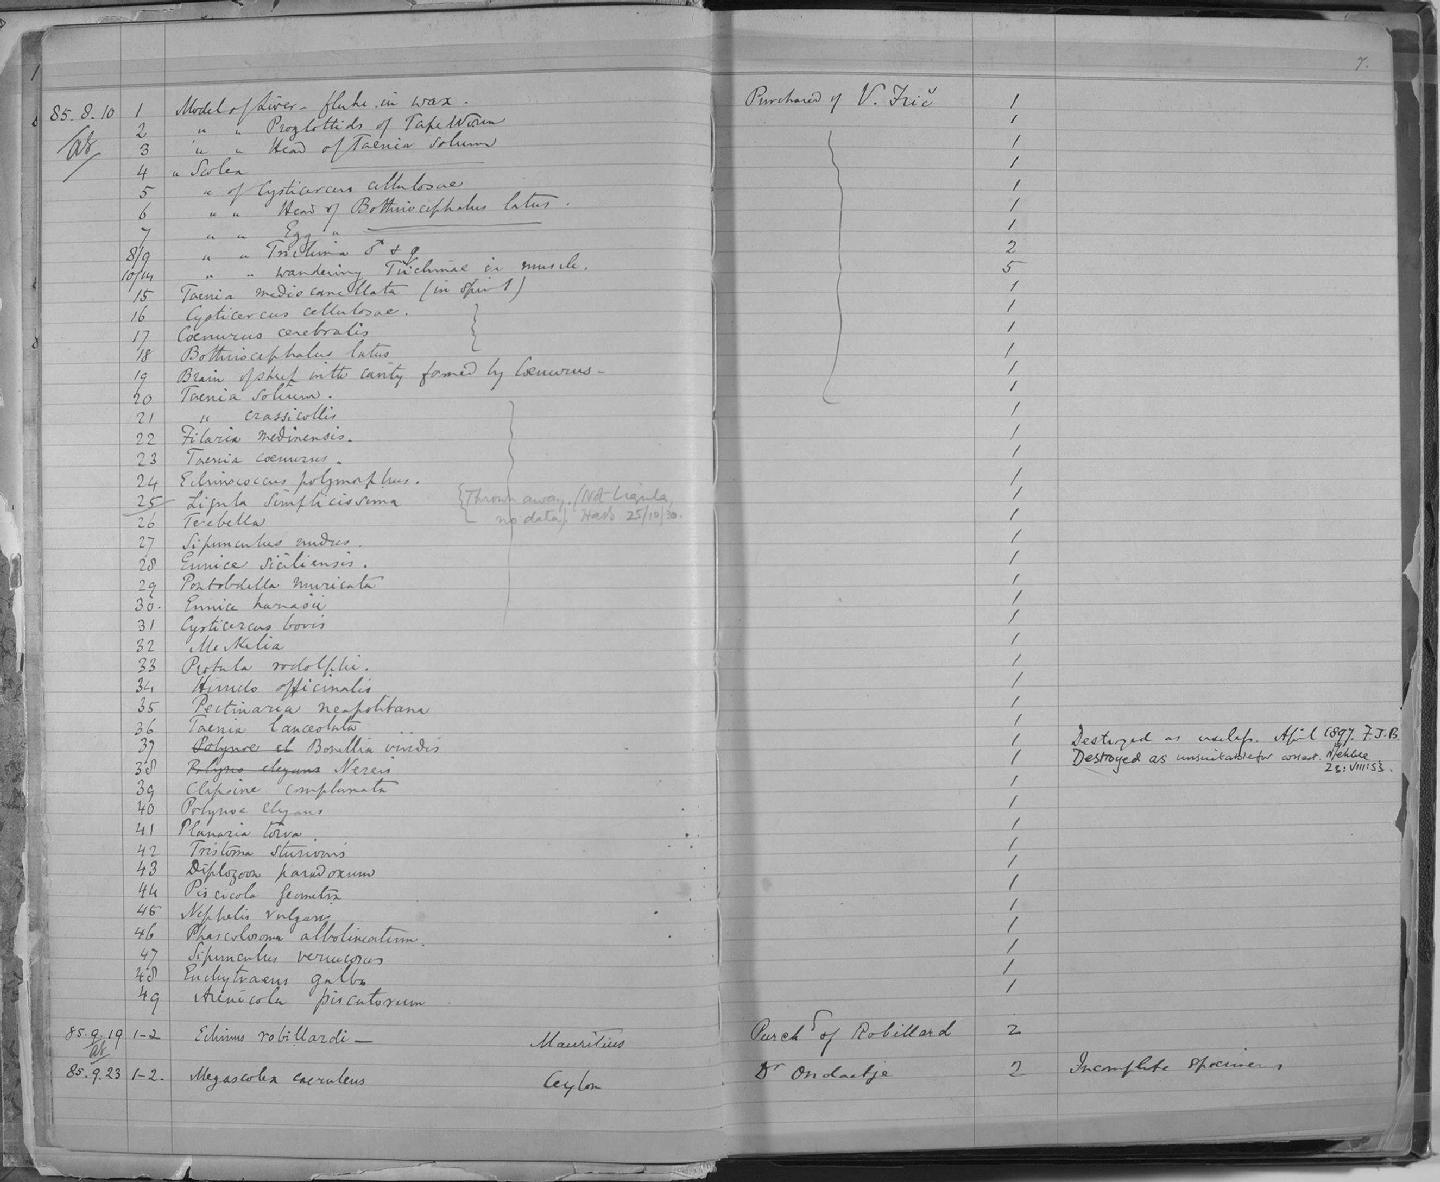 7.
85.8.10 1 Model of Liver-fluke in wax. Purchased of V. Frič 1
2 " " Proglottids of Tape Worm 1
3 " " Head of Taenia solium 1
4 " Scolex 1
5 " of Cysticercus cellulosae 1
6 " " Head of Bothriocephalus latus. 1
7 " " Egg " 1
8/9 " " Trichina ♂ & ♀ 2
10/14 " " wandering Trichinae in muscle. 5
15 Taenia mediocanellata (in spirit) 1
16 Cysticercus cellulosae. 1
17 Coenurus cerebralis 1
18 Bothriocephalus latus 1
19 Brain of sheep with cavity formed by Coenurus- 1
20 Taenia solium. 1
21 " crassicollis 1
22 Filaria medinensis. 1
23 Taenia coenurus. 1
24 Echinococcus polymorphus. 1
25 Ligula simplicissima {Thrown away. (Not Ligula, 1
no data). 25/10/30.
26 Terebella 1
27 Sipunculus nudus. 1
28 Eunice siciliensis. 1
29 Pontobdella muricata 1
30. Eunice harassii 1
31 Cysticercus bovis 1
32 Meckelia 1
33 Protula rodolphi. 1
34 Hirudo officinalis 1
35 Pectinaria neapolitana 1
36 Taenia lanceolata 1
37 Polynoe el Bonellia viridis 1 Destroyed as useless. April 1897. F.J.B
38 Polynoe elegans Nereis 1 Destroyed as unsuitable for
23:VIII:53.
39 Clepsine complanata 1
40 Polynoe elegans 1
41 Planaria torva. 1
42 Tristoma sturionis 1
43 Diplozoon paradoxum 1
44 Piscicola geometra 1
45 Nephelis vulgaris 1
46 Phascolosoma albolineatum. 1
47 Sipunculus verrucosus 1
48 Enchytraeus galba 1
49 Arenicola piscatorum 1
85.9.19 1-2 Echinus robillardi- Mauritius Purchd of Robillard 2
85.9.23 1-2. Megascolex caeruleus Ceylon Dr Ondaatje 2 Incomplete specimens